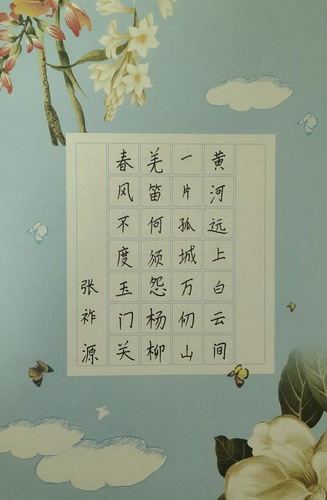 黄河远上白云间
一片孤城万仞山
羌笛何须怨杨柳
春风不度玉门关
张祚源